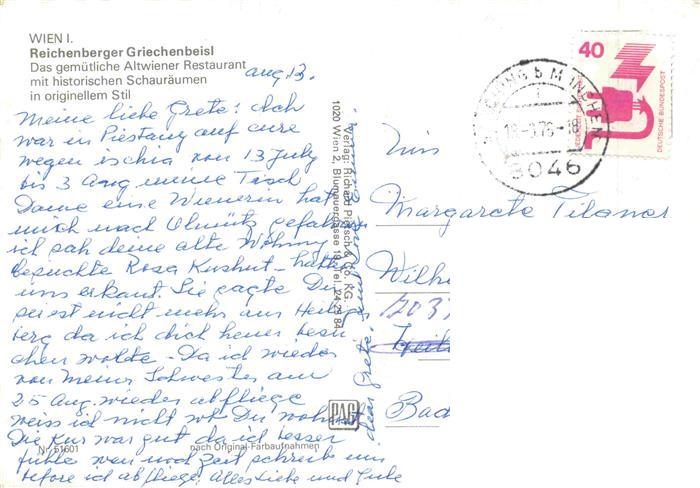 WIEN I.
Reichenberger Griechenbeisl
Das gemütliche Altwiener Restaurant
mit historischen Schauräumen
in originellem Stil
aug 13.
Meine liebe Grete! Ich
war in Piestany auf cure
wegen ischia von 13 July
bis 3 Aug meine Tisch
Dame eine Wienerin hat
mich nach Olmütz gefahren
ich sah deine alte Wohnung
besuchte Rosa - hatte
uns erkant. Sie sagte Du
seiest nicht mehr in
berg da ich dich heuer besu
chen wollte - Da ich wieder
von meiner Schwester am
25 Aug. wieder abfliege
weiss ich nicht wo Du wohnst
Die Kur war gut da ich besser
fühle wen noch Zeit schreib uns
before ich abfliege. Alles Liebe und Gute
dear Grete.
Nr. 51601
nach Original-Farbaufnahmen
Verlag: Richard Pietsch & Co. KG.
1020 Wien 2, Blumauergasse 18, Tel. 24 28 84
PAG
40
DEUTSCHE BUNDESPOST
MÜNCHEN
8046
Margarete Tilgner
Wilh
Bad